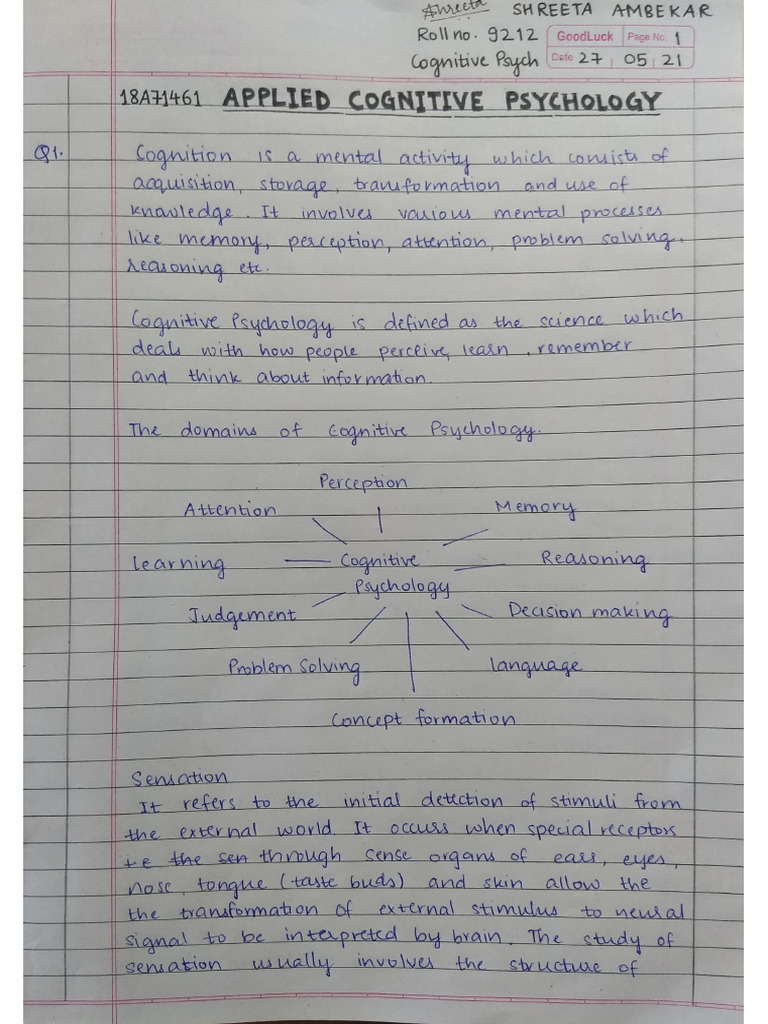 Shreeta SHREETA AMBEKAR
Roll no. 9212 GoodLuck Page No. 1
Cognitive Psych Date 27 05 21
18A71461 APPLIED COGNITIVE PSYCHOLOGY
Q1. Cognition is a mental activity which consists of
acquisition, storage, transformation and use of
knowledge. It involves various mental processes
like memory, perception, attention, problem solving,
reasoning etc.
Cognitive Psychology is defined as the science which
deals with how people perceive, learn, remember
and think about information.
The domains of Cognitive Psychology.
Perception
Attention Memory
Learning Cognitive Reasoning
Psychology
Judgement Decision making
Problem Solving Language
Concept formation
Sensation
It refers to the initial detection of stimuli from
the external world. It occurs when special receptors
i.e the sen through sense organs of ears, eyes,
nose, tongue (taste buds) and skin allow the
the transformation of external stimulus to neural
signal to be interpreted by brain. The study of
sensation usually involves the structure of